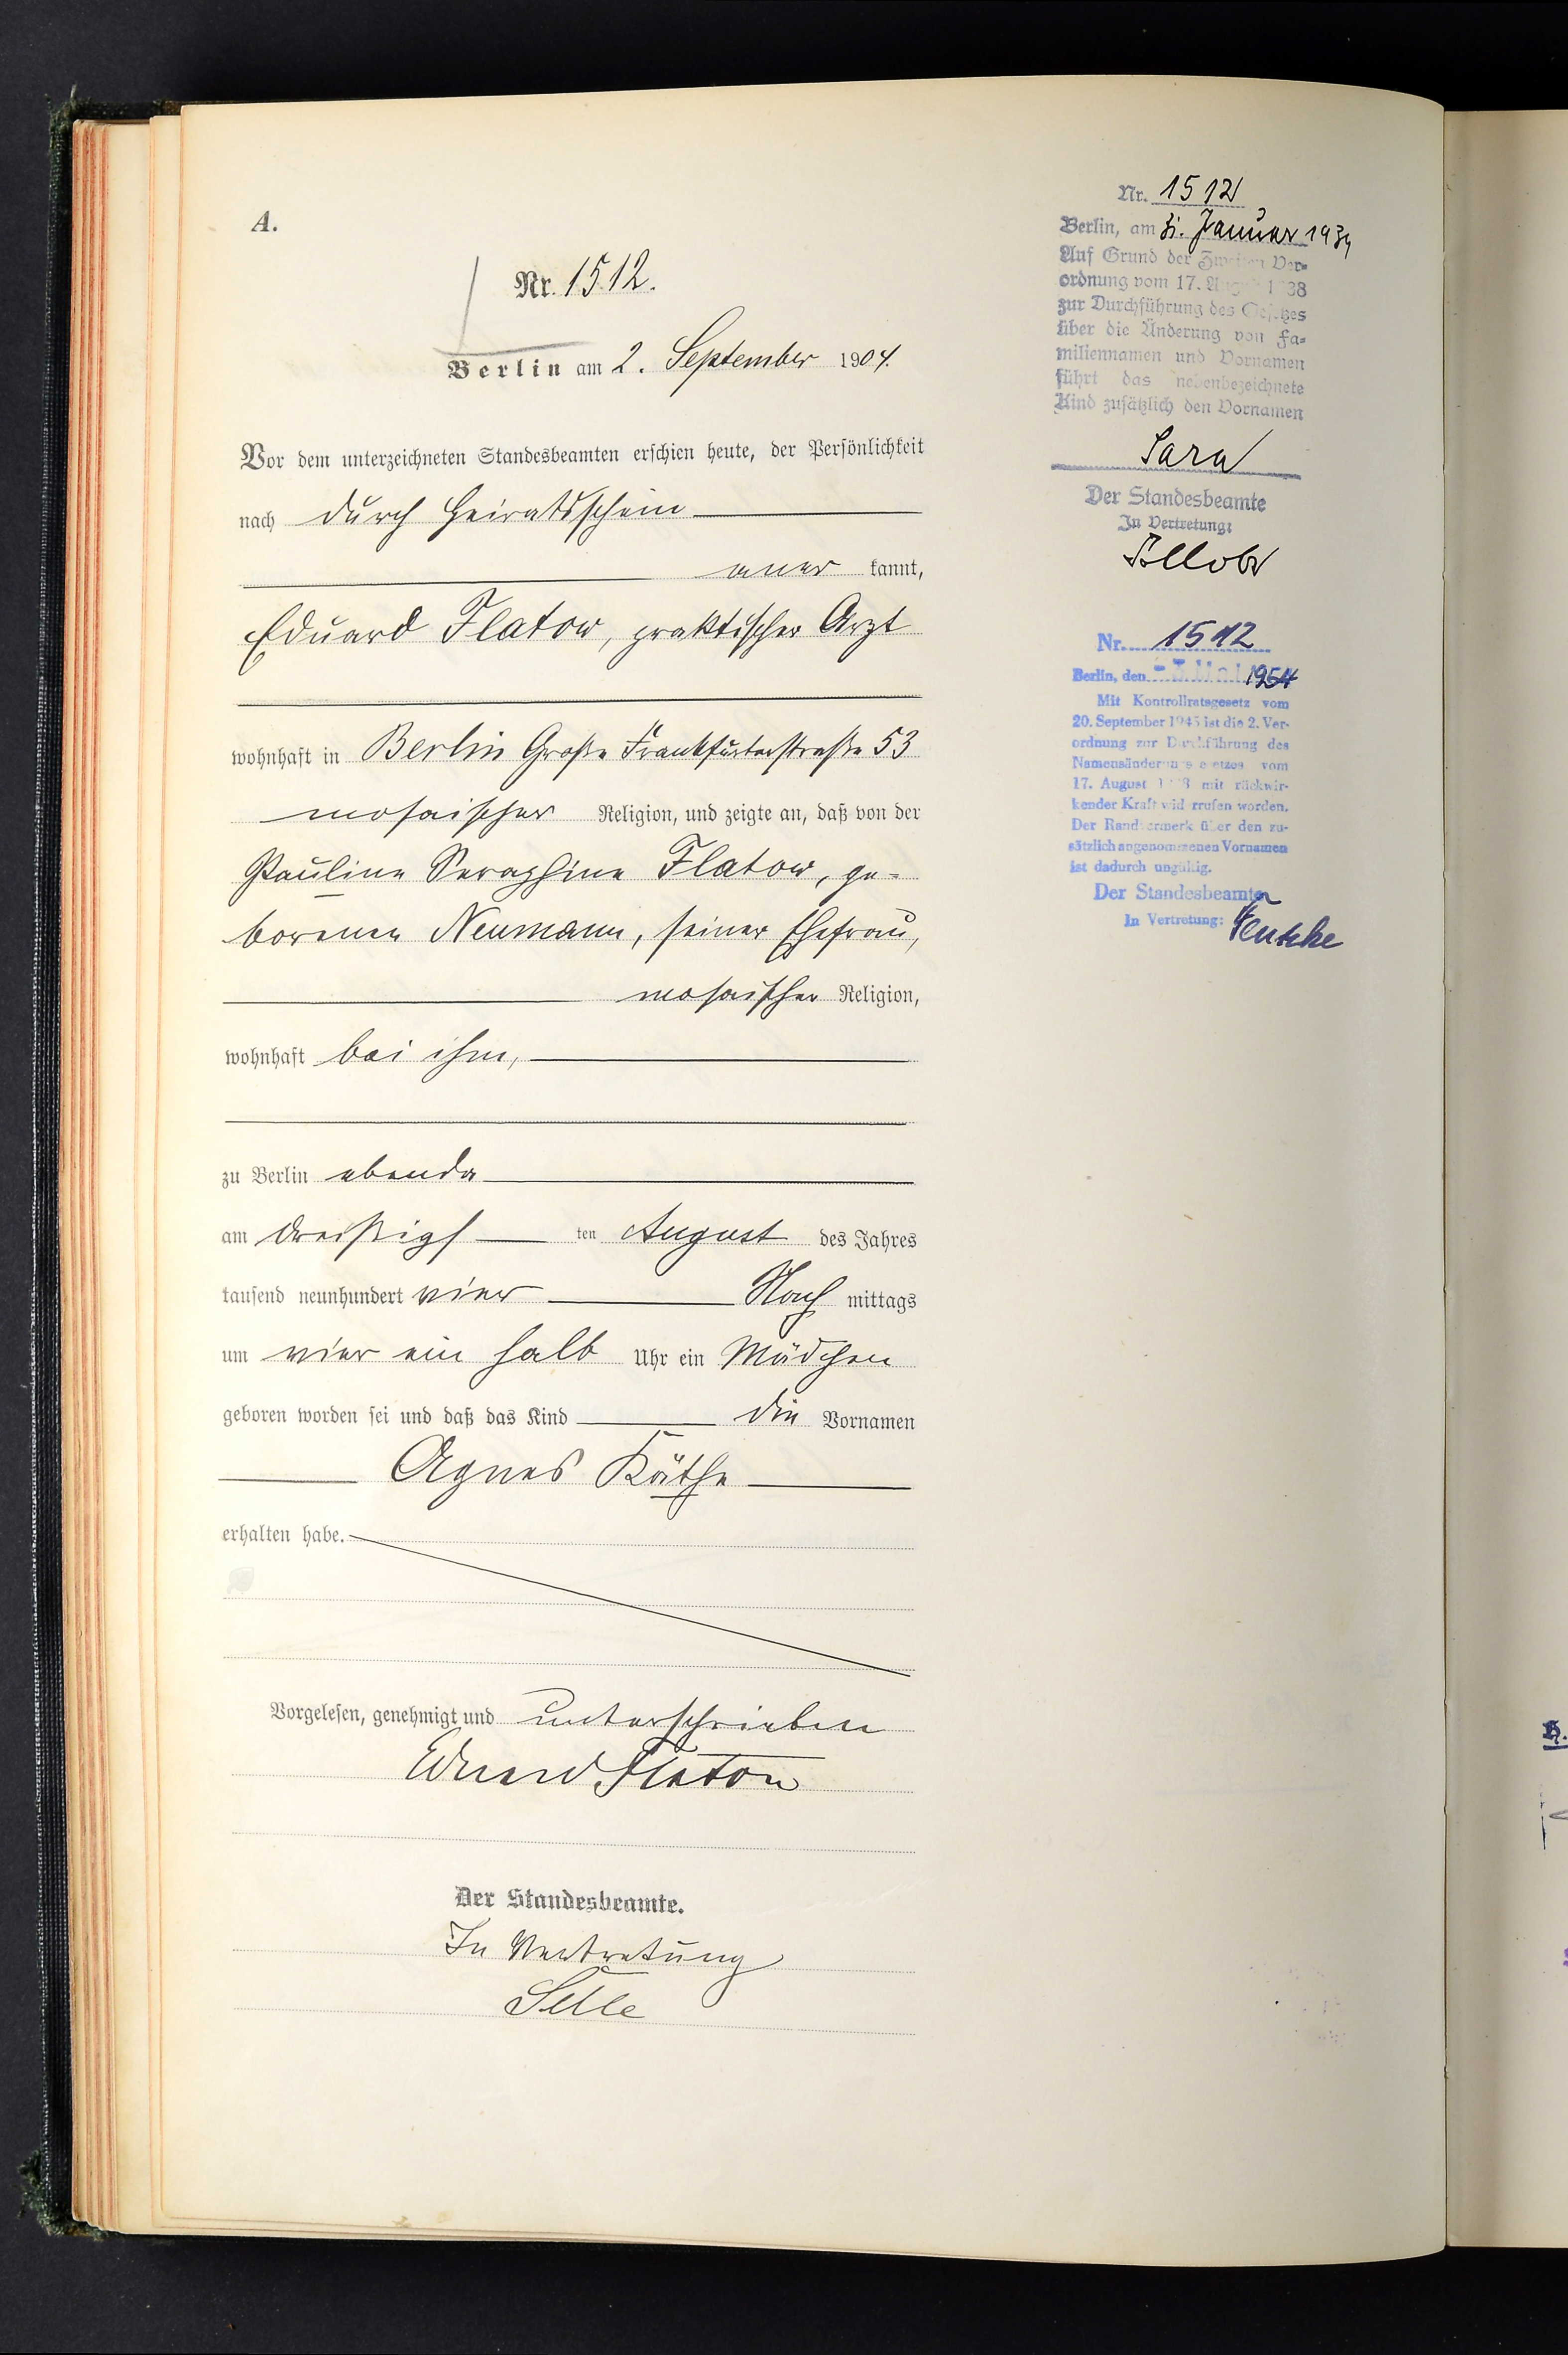 A.
Nr. 1512.
Berlin am 2. September 1904.
Vor dem unterzeichneten Standesbeamten erschien heute, der Persönlichkeit
nach durch Heiratsschein
aner kannt,
Eduard Flatow, praktischer Arzt
wohnhaft in Berlin Große Frankfurterstraße 53
mosaischer Religion, und zeigte an, daß von der
Pauline Seraphine Flatow, ge-
borenen Neumann, seiner Ehefrau,
mosaischer Religion,
wohnhaft bei ihm,
zu Berlin ebenda
am dreißigs ten August des Jahres
tausend neunhundert vier Nach mittags
um vier ein halb Uhr ein Mädchen
geboren worden sei und daß das Kind die Vornamen
Agnes Käthe
erhalten habe.
Vorgelesen, genehmigt und unterschrieben
Eduard Flatow
Der Standesbeamte.
In Vertretung
Selle
Nr. 1512
Berlin, am 31. Januar 1939
Auf Grund der Zweiten Ver-
ordnung vom 17. August 1938
zur Durchführung des Gesetzes
über die Änderung von Fa-
miliennamen und Vornamen
führt das nebenbezeichnete
Kind zusätzlich den Vornamen
Sara
Der Standesbeamte
In Vertretung:
Nr. 1512
Berlin, den 1954
Mit Kontrollratsgesetz vom
20. September 1945 ist die 2. Ver-
ordnung zur Durchführung des
Namensänderungsgesetzes vom
17. August 1938 mit rückwir-
kender Kraft widerrufen worden.
Der Randvermerk über den zu-
sätzlich angenommenen Vornamen
ist dadurch ungültig.
Der Standesbeamte
In Vertretung: